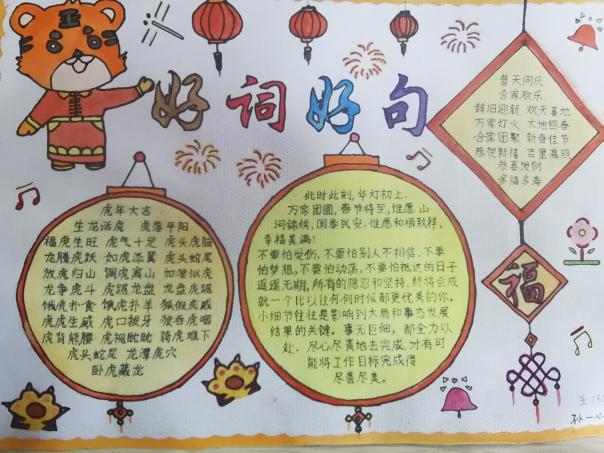 好词好句
虎年大吉
生龙活虎 虎落平阳
福虎生旺 虎气十足 虎头虎脑
龙腾虎跃 如虎添翼 虎头蛇尾
放虎归山 调虎离山 如狼似虎
龙争虎斗 虎踞龙盘 龙盘虎踞
饿虎扑食 饿虎扑羊 狐假虎威
虎虎生威 虎口拔牙 狼吞虎咽
虎背熊腰 虎视眈眈 骑虎难下
虎头蛇尾 龙潭虎穴
卧虎藏龙
此时此刻,华灯初上,
万家团圆,春节将至,惟愿山
河锦绣,国泰民安,惟愿和顺致祥,
幸福美满!
不要怕受伤,不要怕别人不相信、不要
怕梦想,不要怕动荡,不要怕抵达的日子
遥遥无期,所有的隐忍和坚持,终将会成
就一个比以往任何时候都更优秀的你。
小细节往往是影响到大局和事态发展
结果的关键。事无巨细,都全力以
赴、尽心尽责地去完成,才有可
能将工作目标完成得
尽善尽美。
普天同庆
合家欢乐
辞旧迎新 欢天喜地
万家灯火 大地回春
合家团聚 新春佳节
恭贺新福 吉星高照
恭喜发财
多福多寿
福